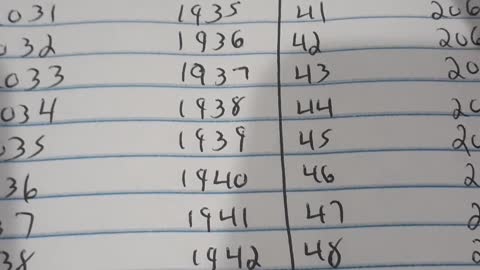 031 1935 41 206
032 1936 42 206
033 1937 43 20
034 1938 44 20
035 1939 45 20
36 1940 46 2
37 1941 47 2
38 1942 48 2